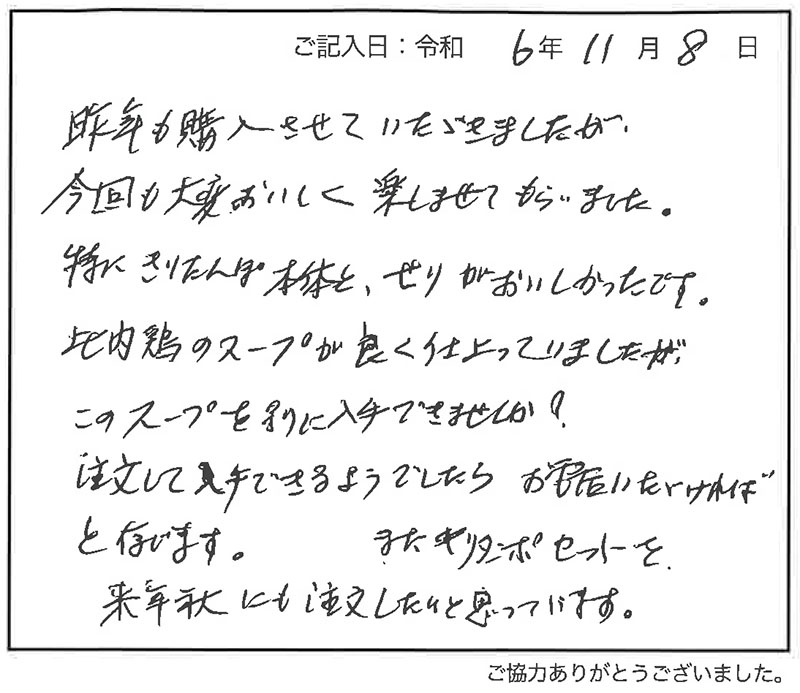 ご記入日：令和 6年 11月 8日
昨年も購入させていただきましたが、
今回も大変おいしく楽しませてもらいました。
特にきりたんぽ本体と、せりがおいしかったです。
比内鶏のスープが良く仕上っていましたが、
このスープを別に入手できませんか？
注文して入手できるようでしたらお電話いただければ
と存じます。 またキリタンポセットを
来年秋にも注文したいと思っています。
ご協力ありがとうございました。